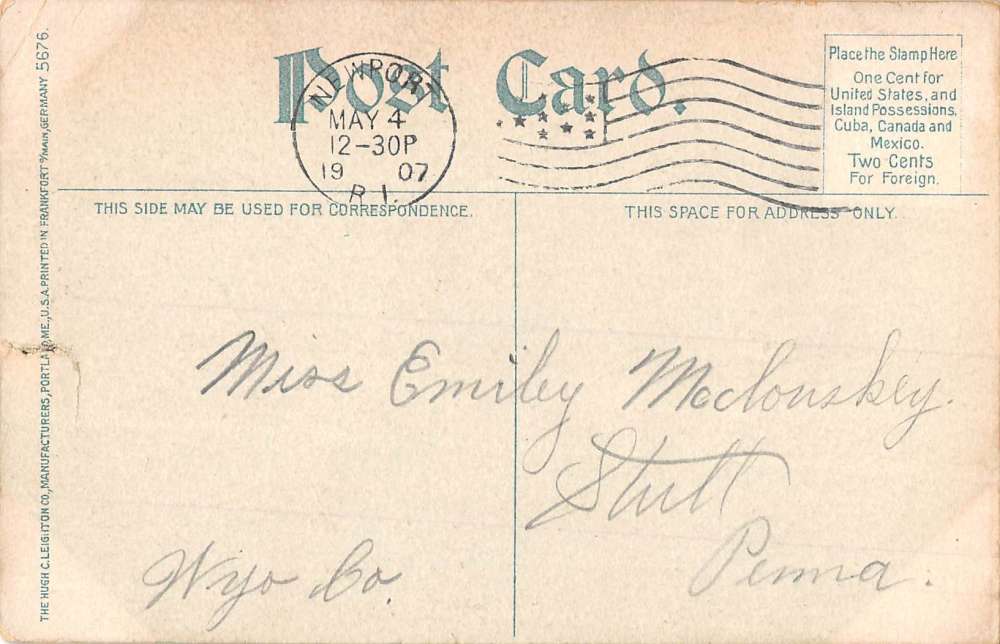 Post Card.
NEWPORT
MAY 4
12-30P
19 07
R.I.
Place the Stamp Here
One Cent for
United States, and
Island Possessions,
Cuba, Canada and
Mexico.
Two Cents
For Foreign.
THIS SIDE MAY BE USED FOR CORRESPONDENCE.
THIS SPACE FOR ADDRESS ONLY.
Miss Emiley Mcclouskey.
Stull
Penna.
Wyo Co.
THE HUGH C. LEIGHTON CO., MANUFACTURERS, PORTLAND, ME., U.S.A. PRINTED IN FRANKFORT o/MAIN, GERMANY 5676.